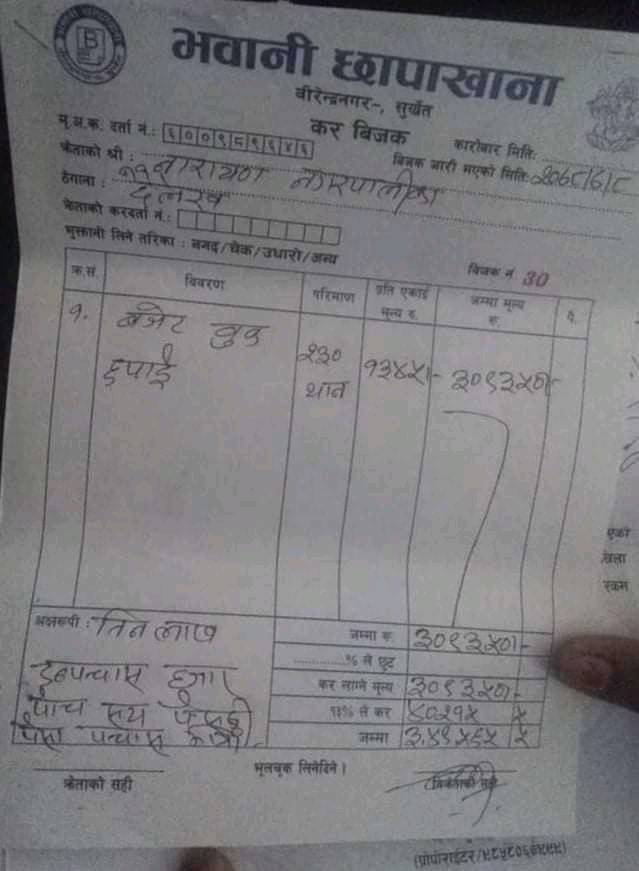 भवानी छापाखाना
वीरेन्द्रनगर-, सुर्खेत
कर बिजक
मू.अ.क. दर्ता नं.: ६००९८९६४६
कारोबार मिति:
क्रेताको श्री : नारायण नगरपालिका
बिजक जारी भएको मिति: २०७८/६/८
ठेगाना : दैलेख
क्रेताको करदर्ता नं.:
भुक्तानी लिने तरिका : नगद/चेक/उधारो/अन्य
बिजक नं 30
क्र.सं. विवरण परिमाण प्रति एकाई मूल्य रु. जम्मा मूल्य रु. पै.
१. बजेट बुक २३० १३४५।- ३०९३५०।-
छपाई थान
अक्षरूपी : तिन लाख
जम्मा रु. ३०९३५०।-
% ले छुट
उनन्पचास हजार
कर लाग्ने मूल्य ३०९३५०।-
पाच सय पैसठ्ठी
१३% ले कर ४०२१५ ५
पैसा पचास मात्र।
जम्मा ३,४९५६५ ५
भूलचुक लिनेदिने।
क्रेताको सही
बिक्रेताको सही
एको
रकम